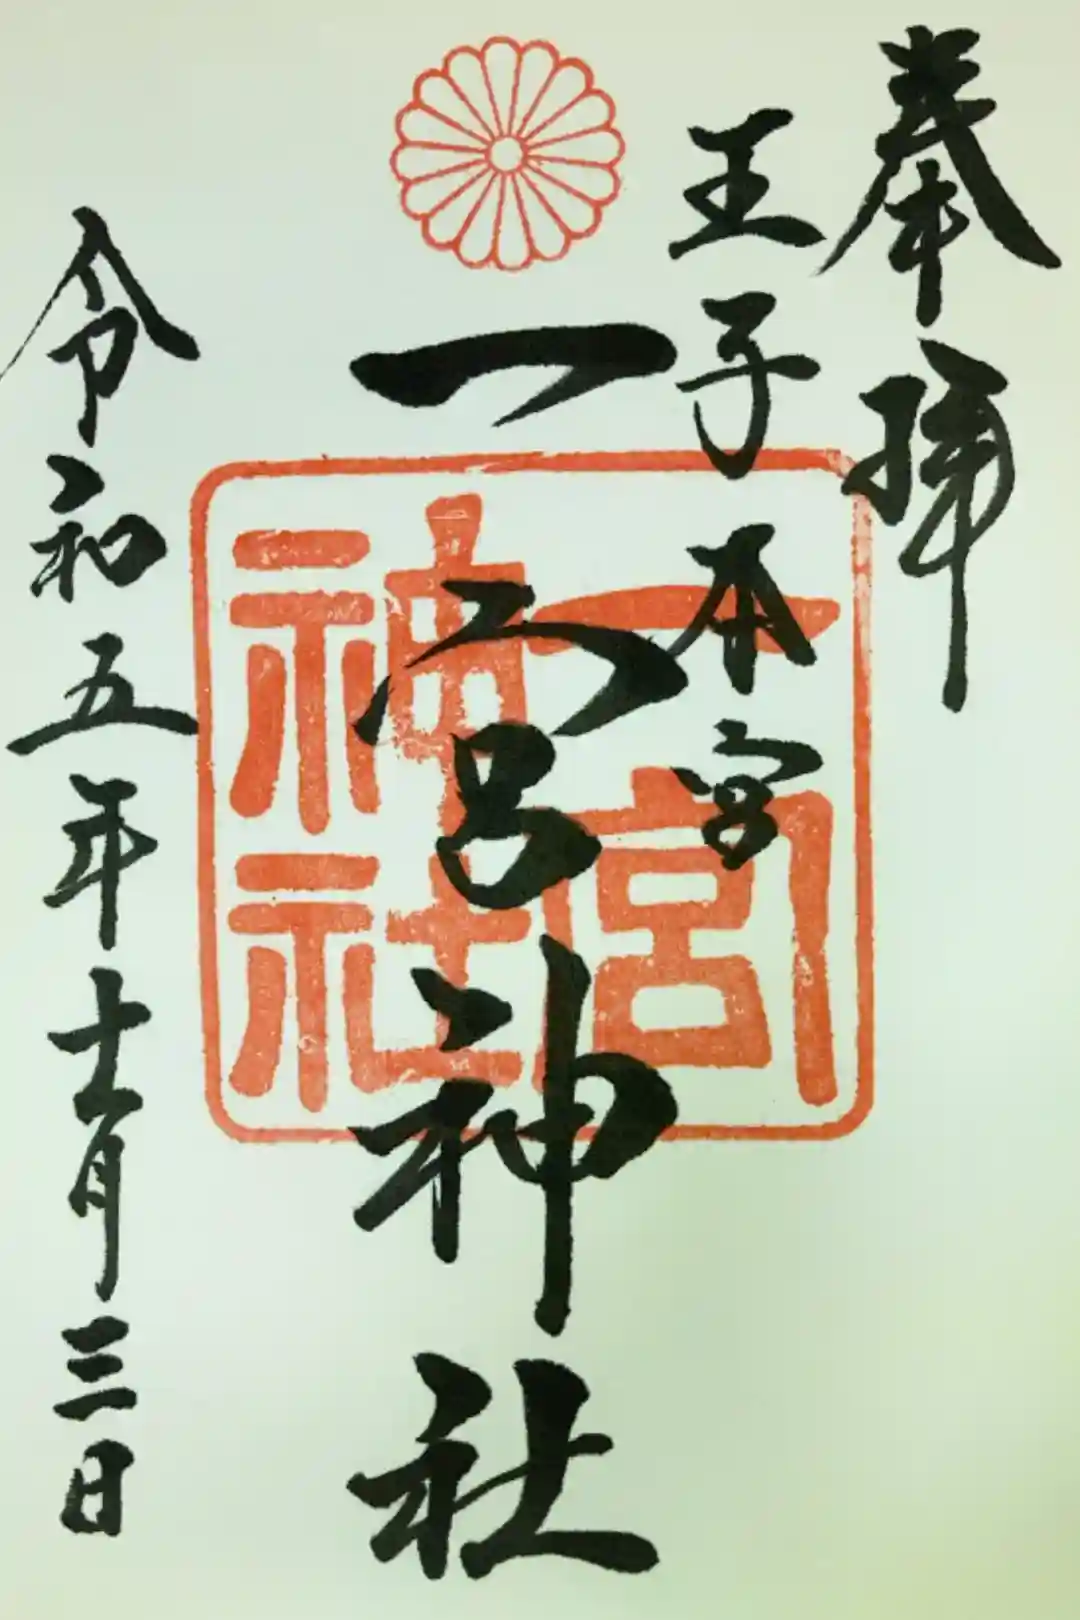 奉拝
王子本宮
一宮神社
一宮
神社
令和五年十一月三日